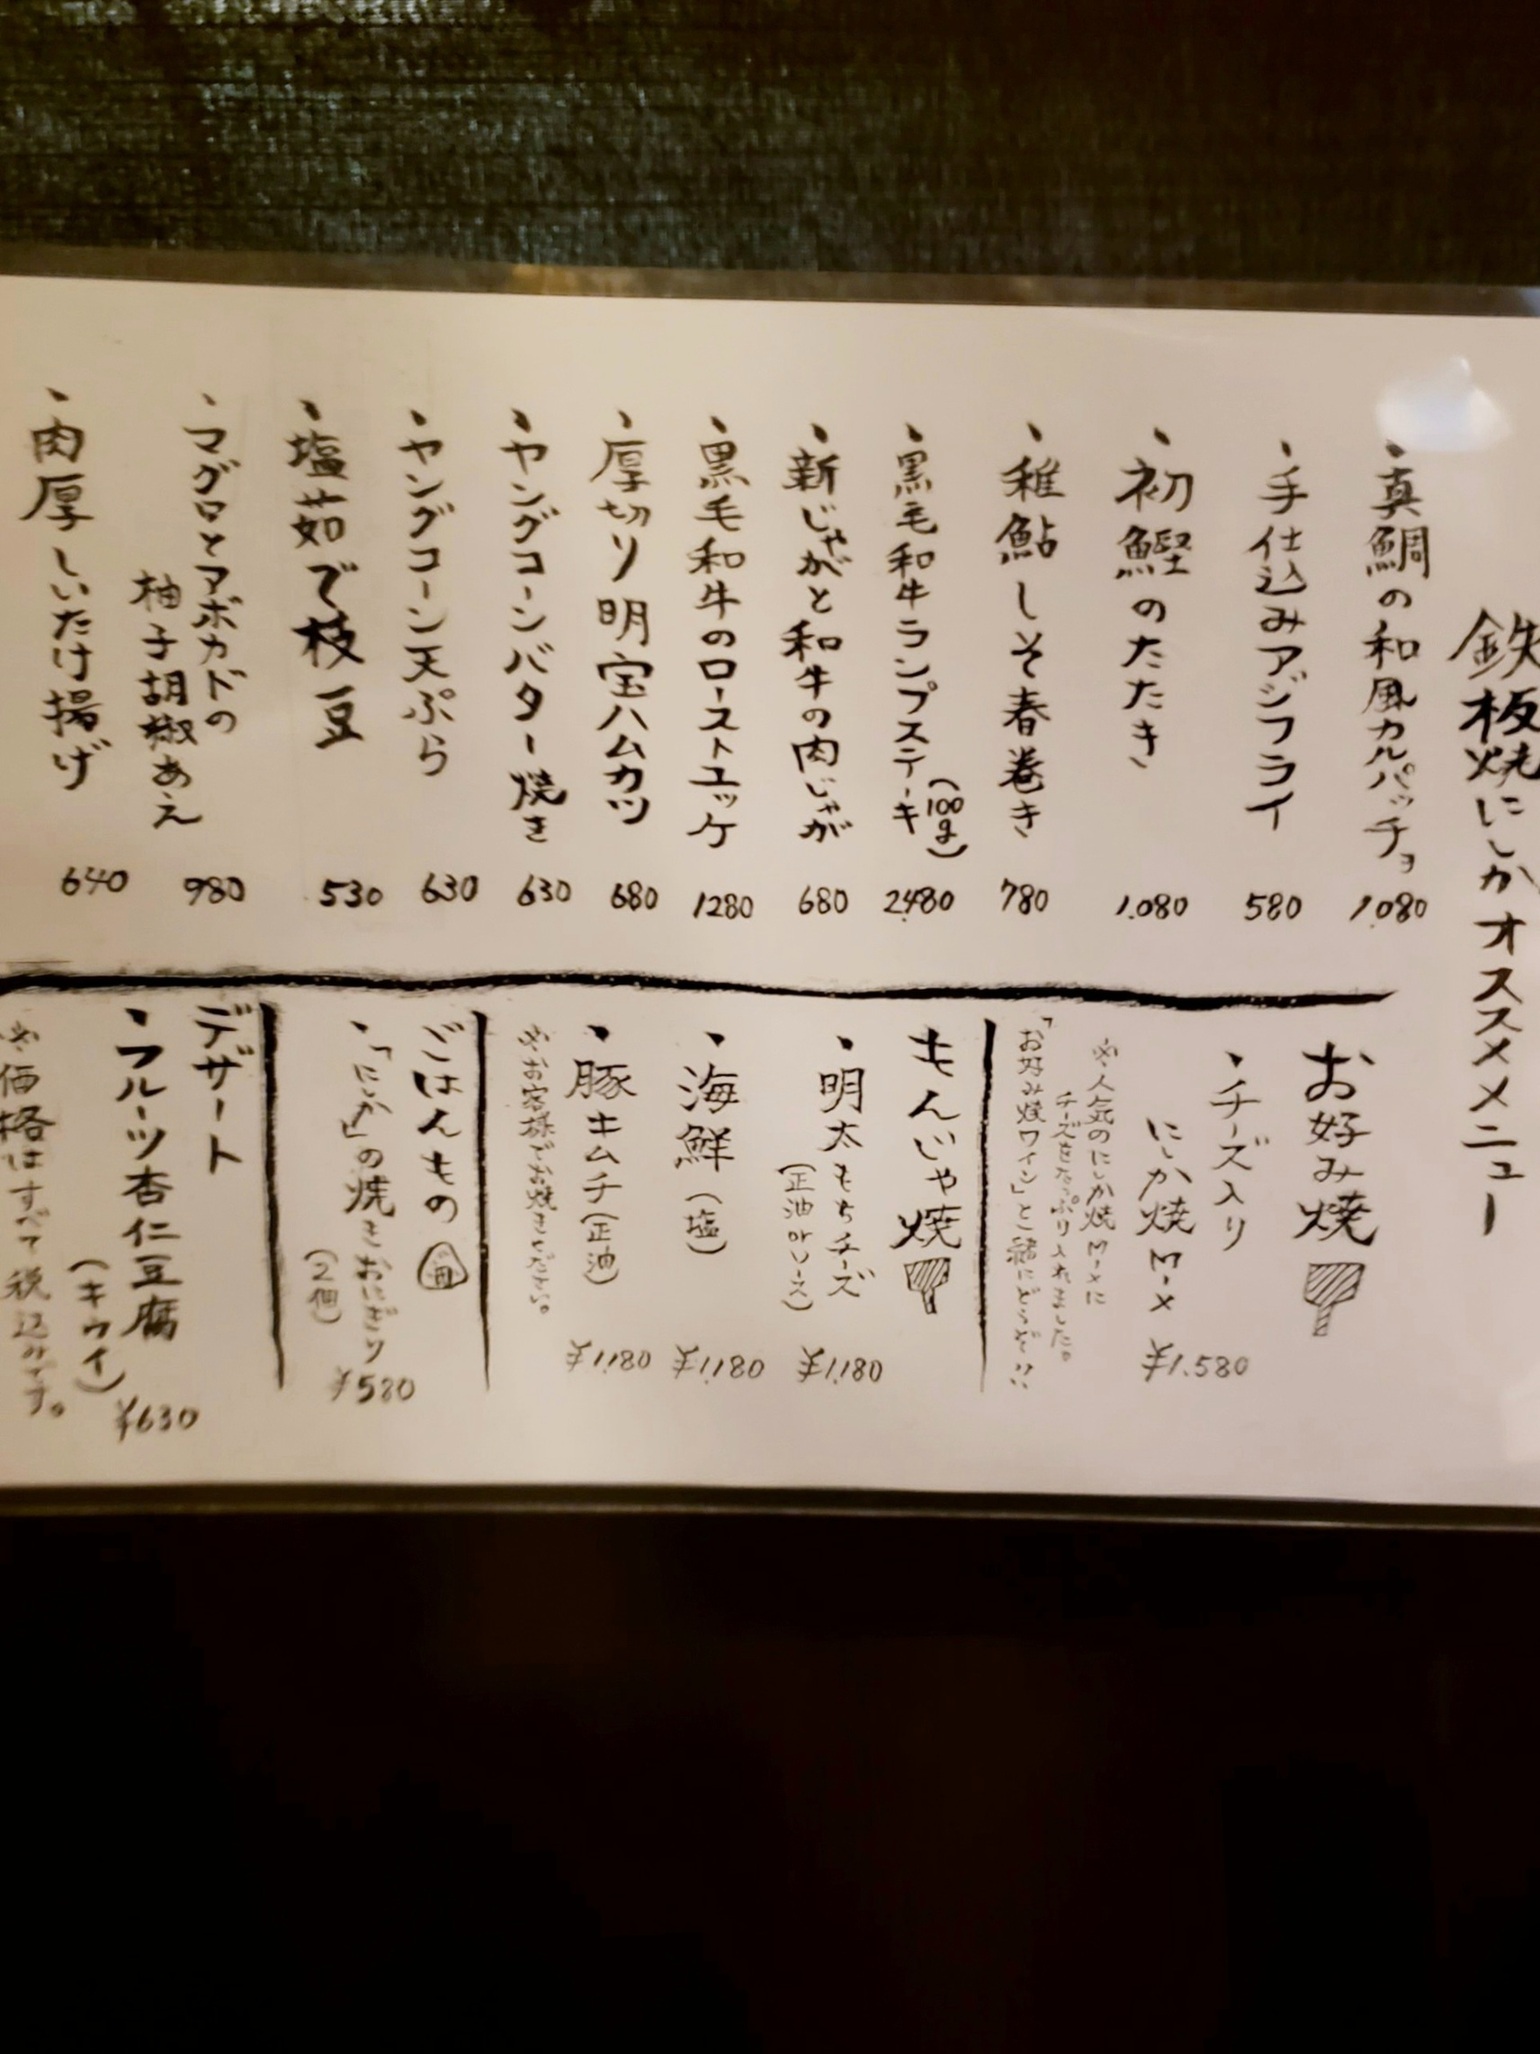 鉄板焼にしかオススメメニュー
・真鯛の和風カルパッチョ 1,080
・手仕込みアジフライ 580
・初鰹のたたき 1,080
・稚鮎しそ春巻き 780
・黒毛和牛ランプステーキ(100g) 2,480
・新じゃがと和牛の肉じゃが 680
・黒毛和牛のローストユッケ 1280
・厚切り明宝ハムカツ 680
・ヤングコーンバター焼き 630
・ヤングコーン天ぷら 630
・塩茹で枝豆 530
・マグロとアボカドの
柚子胡椒あえ 980
・肉厚しいたけ揚げ 640
お好み焼
・チーズ入り
にしか焼Mix ¥1.580
※人気のにしか焼Mixに
チーズをたっぷり入れました。
「お好み焼ワイン」と一緒にどうぞ!!
もんじゃ焼
・明太もちチーズ
(正油orソース) ¥1,180
・海鮮(塩) ¥1,180
・豚キムチ(正油) ¥1,180
※お客様でお焼きください。
ごはんもの
・「にしか」の焼きおにぎり
(2個) ¥580
デザート
・フルーツ杏仁豆腐
(キウイ) ¥630
※価格はすべて税込みです。